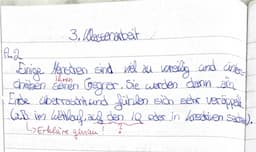 3. Klassenarbeit
Nr. 2
Einige Menschen sind viel zu voreilig und unter-
ihren
schätzen seinen Gegner. Sie werden dann am
Ende überrascht und fühlen sich sehr veräppelt
(z.B. im Wettlauf, auf den IQ oder in kreativen Sachen).
↳ Erkläre genau! ?